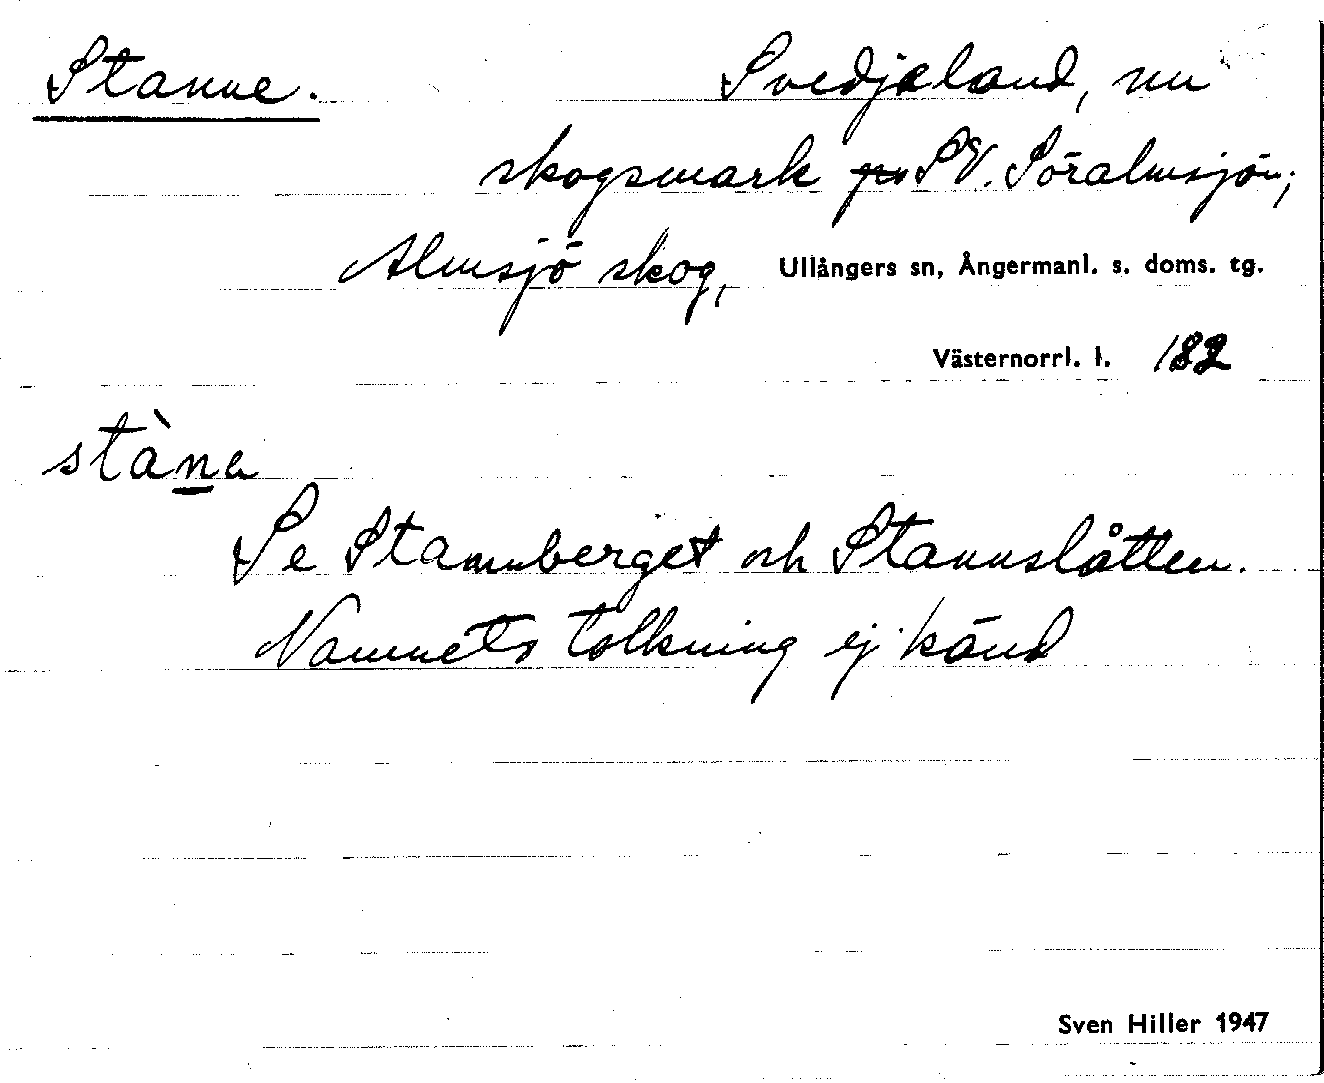 Stanne. Svedjeland, nu
skogsmark SV. Söralmsjön;
Almsjö skog, Ullångers sn, Ångermanl. s. doms. tg.
Västernorrl. l. 182
stàna
Se Stannberget och Stannslåtten.
Namnets tolkning ej känd
Sven Hiller 1947